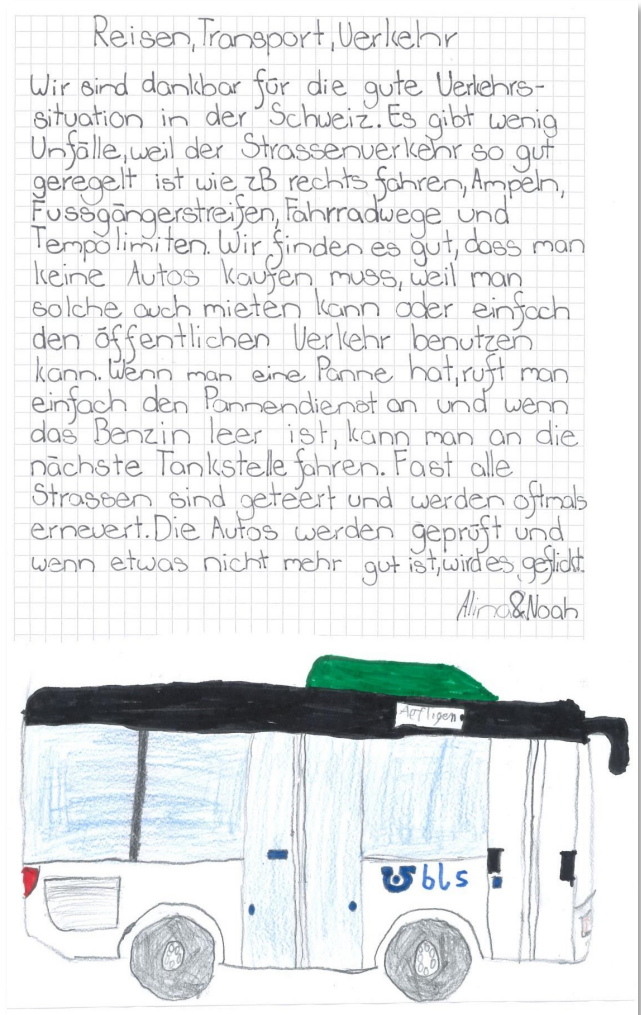 Reisen, Transport, Verkehr
Wir sind dankbar für die gute Verkehrs-
situation in der Schweiz. Es gibt wenig
Unfälle, weil der Strassenverkehr so gut
geregelt ist wie zB rechts fahren, Ampeln,
Fussgängerstreifen, Fahrradwege und
Tempolimiten. Wir finden es gut, dass man
keine Autos kaufen muss, weil man
solche auch mieten kann oder einfach
den öffentlichen Verkehr benutzen
kann. Wenn man eine Panne hat, ruft man
einfach den Pannendienst an und wenn
das Benzin leer ist, kann man an die
nächste Tankstelle fahren. Fast alle
Strassen sind geteert und werden oftmals
erneuert. Die Autos werden geprüft und
wenn etwas nicht mehr gut ist, wird es geflickt.
Alina & Noah
Aefligen
bls